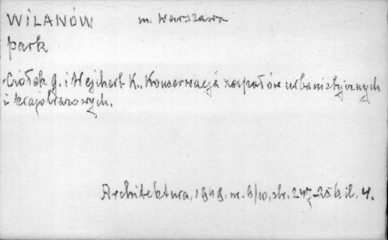 WILANÓW m. Warszawa
park
Ciołek G. i Wejchert K., Konserwacja zespołów urbanistycznych
i krajobrazowych.
Architektura, 1949, nr. 9/10, str. 247-256, il. 4.